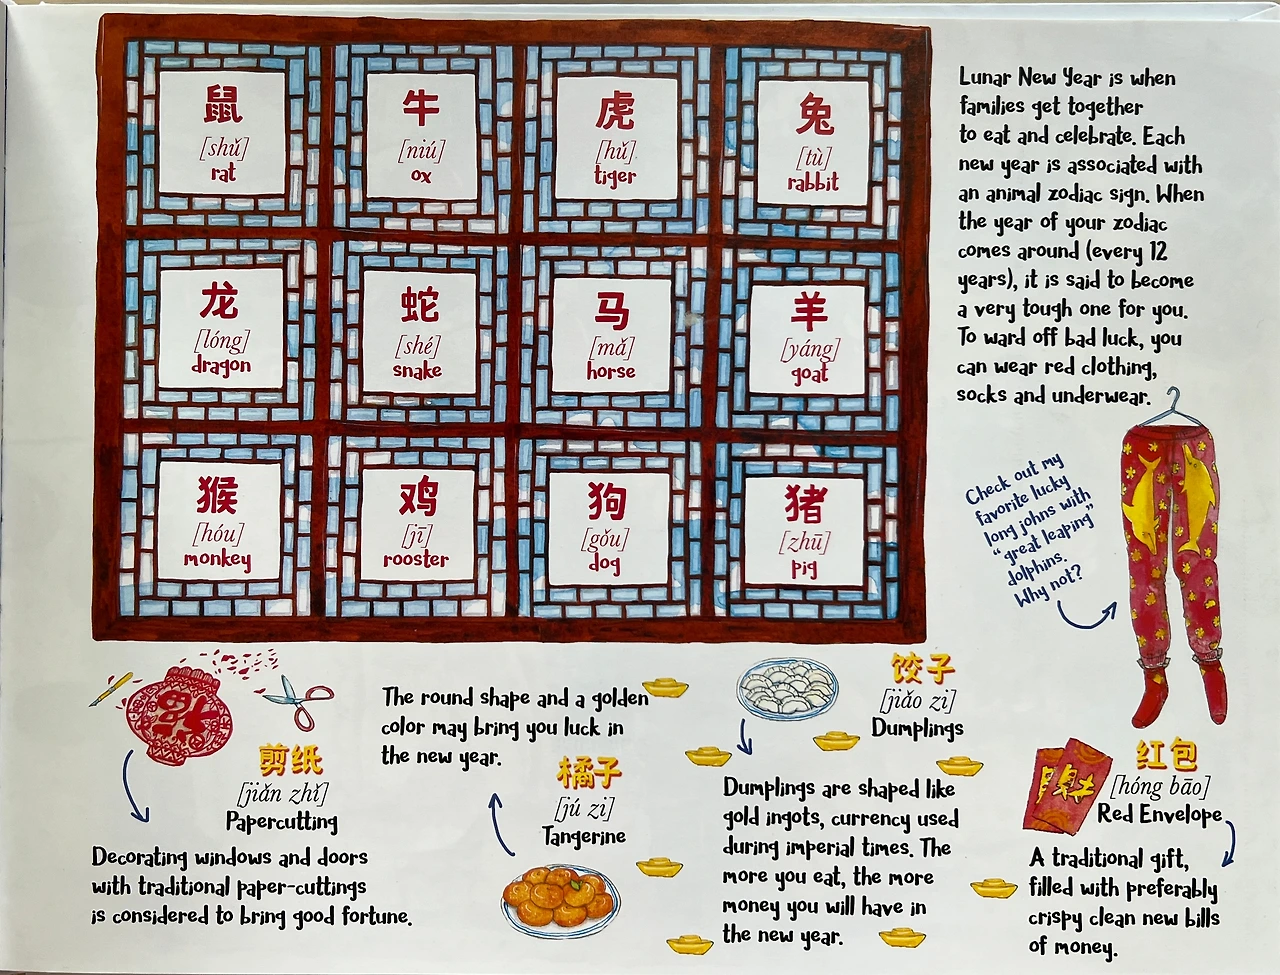 鼠
[shǔ]
rat
牛
[niú]
ox
虎
[hǔ]
tiger
兔
[tù]
rabbit
龙
[lóng]
dragon
蛇
[shé]
snake
马
[mǎ]
horse
羊
[yáng]
goat
猴
[hóu]
monkey
鸡
[jī]
rooster
狗
[gǒu]
dog
猪
[zhū]
pig
Lunar New Year is when
families get together
to eat and celebrate. Each
new year is associated with
an animal zodiac sign. When
the year of your zodiac
comes around (every 12
years), it is said to become
a very tough one for you.
To ward off bad luck, you
can wear red clothing,
socks and underwear.
Check out my
favorite lucky
long johns with
"great leaping"
dolphins.
Why not?
剪纸
[jiǎn zhǐ]
Papercutting
Decorating windows and doors
with traditional paper-cuttings
is considered to bring good fortune.
The round shape and a golden
color may bring you luck in
the new year.
橘子
[jú zi]
Tangerine
饺子
[jiǎo zi]
Dumplings
Dumplings are shaped like
gold ingots, currency used
during imperial times. The
more you eat, the more
money you will have in
the new year.
红包
[hóng bāo]
Red Envelope
A traditional gift,
filled with preferably
crispy clean new bills
of money.